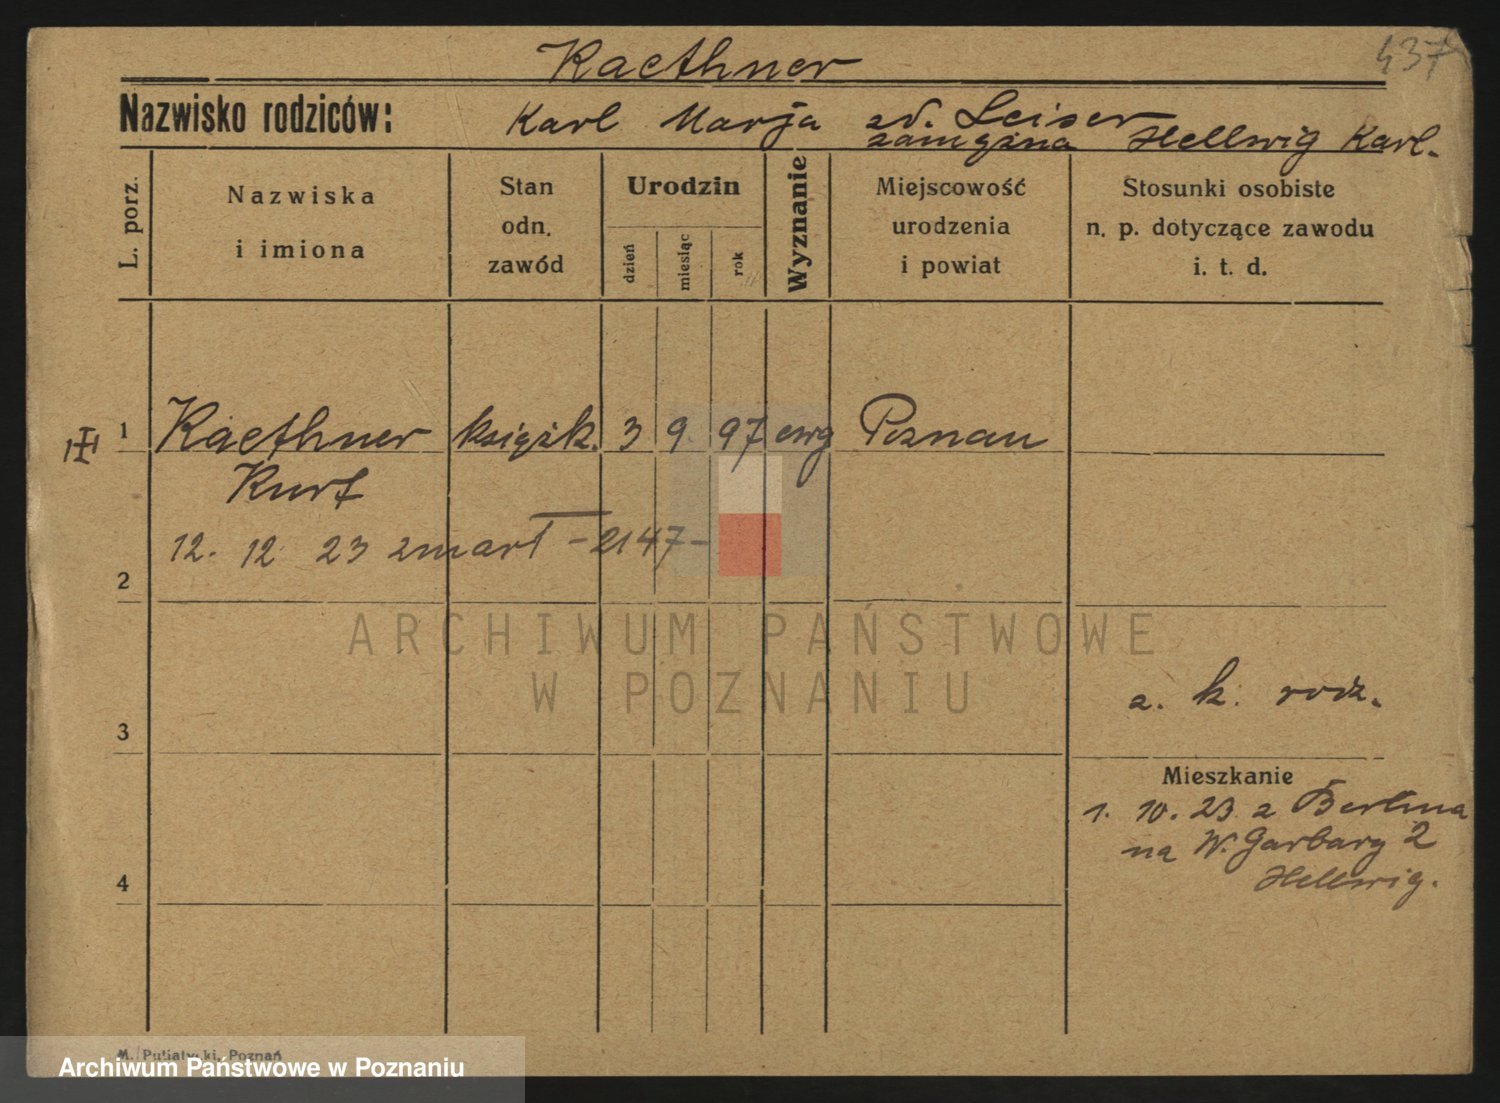 437
Kaethner
Nazwisko rodziców: Karl Marja zd. Leiser
zamężna Hellwig Karl.
L. porz.
Nazwiska
i imiona
Stan
odn.
zawód
Urodzin
dzień
miesiąc
rok
Wyznanie
Miejscowość
urodzenia
i powiat
Stosunki osobiste
n. p. dotyczące zawodu
i. t. d.
1 Kaethner książk. 3 9. 97 ewg Poznań
Kurt
12. 12. 23 zmarł -2147-
2
ARCHIWUM PAŃSTWOWE
W POZNANIU
z. k. rodz.
3
Mieszkanie
1. 10. 23 z Berlina
na W. Garbary 2
Hellwig.
4
M. Putiatycki, Poznań
Archiwum Państwowe w Poznaniu